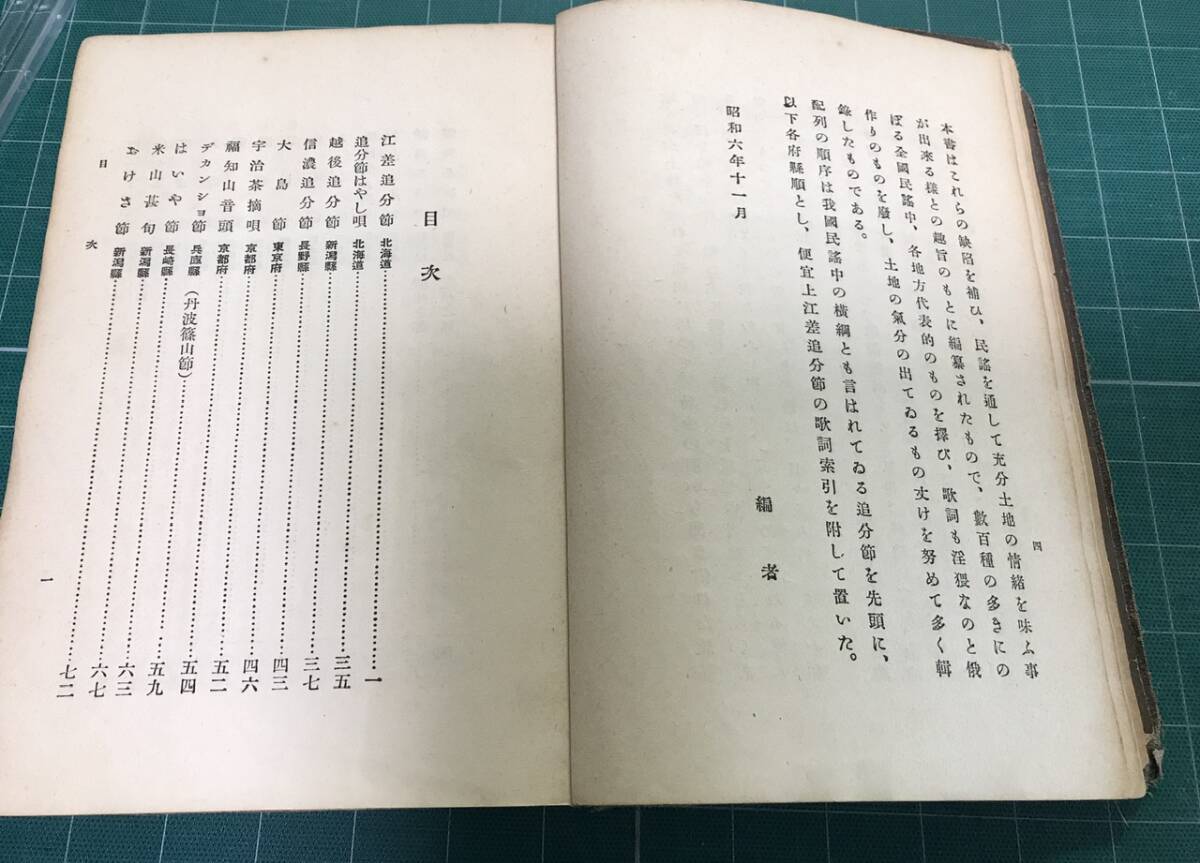 四
本書はこれらの缺陷を補ひ、民謠を通して充分土地の情緒を味ふ事
が出來る樣との趣旨のもとに編纂されたもので、數百種の多きにの
ぼる全國民謠中、各地方代表的のものを擇び、歌詞も淫猥なのと俄
作りのものを廢し、土地の氣分の出てゐるもの丈けを努めて多く輯
錄したものである。
配列の順序は我國民謠中の橫綱とも言はれてゐる追分節を先頭に、
以下各府縣順とし、便宜上江差追分節の歌詞索引を附して置いた。
昭和六年十一月
編者
目次
江差追分節 北海道……………一
追分節はやし唄 北海道……………三五
越後追分節 新潟縣……………三七
信濃追分節 長野縣……………四三
大島節 東京府……………四六
宇治茶摘唄 京都府……………五二
福知山音頭 京都府……………五四
デカンショ節 兵庫縣(丹波篠山節)……………五九
はいや節 長崎縣……………六三
米山甚句 新潟縣……………六七
おけさ節 新潟縣……………七二
目次
一